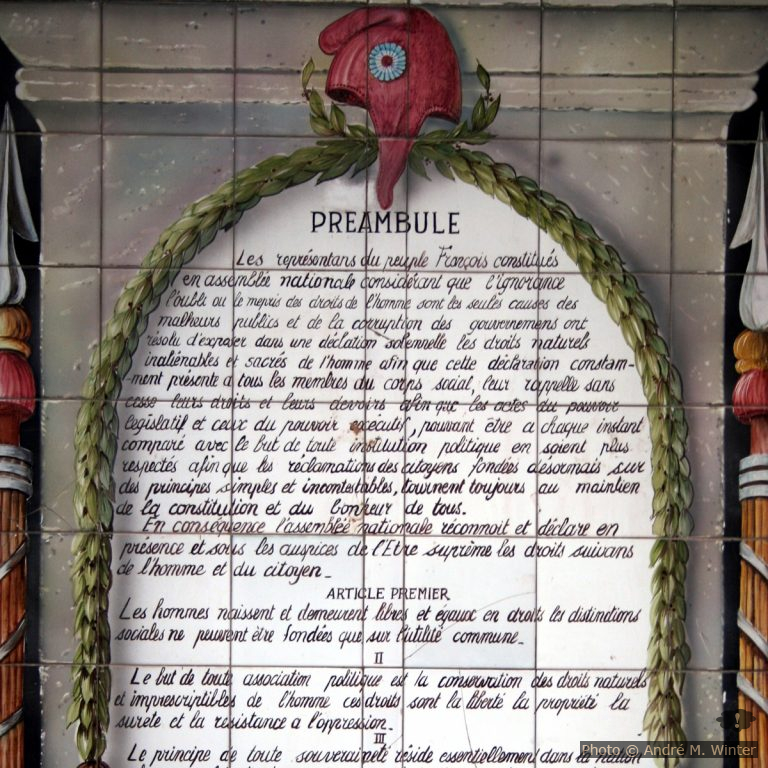 PREAMBULE
Les représentans du peuple François constitués
en assemblée nationale considérant que l'ignorance
l'oubli ou le mepris des droits de l'homme sont les seules causes des
malheurs publics et de la corruption des gouvernemens ont
résolu d'exposer dans une déclation solennelle les droits naturels
inaliénables et sacrés de l'homme afin que cette déclaration constam-
-ment présente a tous les membres du corps social, leur rappelle sans
cesse leurs droits et leurs devoirs afin que les actes du pouvoir
legislatif et ceux du pouvoir exécutif, pouvant être a chaque instant
comparé avec le but de toute institution politique en soient plus
respectés afin que les réclamations des citoyens fondées désormais sur
des principes simples et incontestables, tournent toujours au maintien
de la constitution et du bonheur de tous.
En conséquence l'assemblée nationale réconnoit et déclare en
présence et sous les auspices de l'Etre suprême les droits suivans
de l'homme et du citoyen_
ARTICLE PREMIER
Les hommes naissent et demeurent libres et égaux en droits les distinctions
sociales ne peuvent être fondées que sur l'utilité commune_
II
Le but de toute association politique est la conservation des droits naturels
et imprescriptibles de l'homme ces droits sont la liberté la propriété la
sureté et la resistance a l'oppression.
III
Le principe de toute souveraineté réside essentiellement dans la nation
Photo © André M. Winter